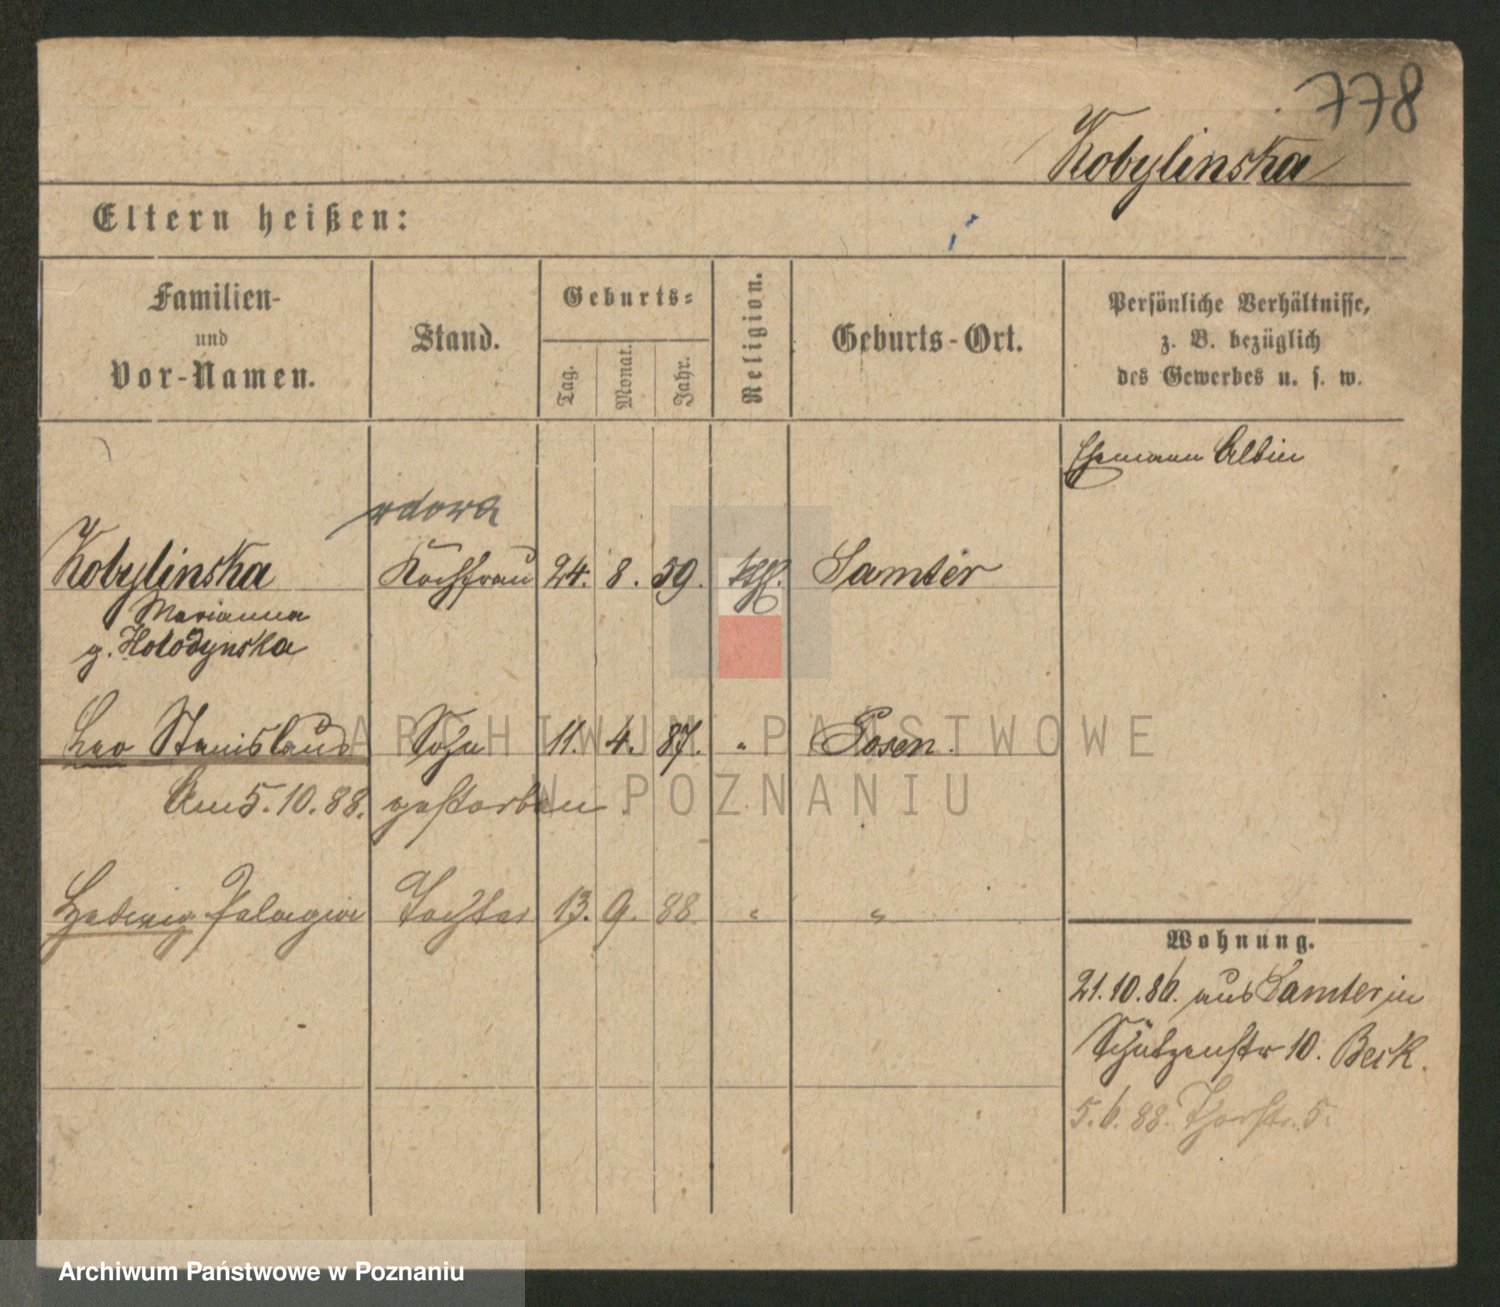 778
Kobylinska
Eltern heißen:
Familien-
und
Vor-Namen.
Stand.
Geburts-
Tag.
Monat.
Jahr.
Religion.
Geburts-Ort.
Persönliche Verhältnisse,
z. B. bezüglich
des Gewerbes u. s. w.
Ehemann Albin
wdowa
Kobylinska Kochfrau 24. 8. 59. kth. Samter
Marianna
g. Holodynska
Leo Stanislaus Sohn 11. 4. 87. " Posen.
Am 5. 10. 88. gestorben
Hedwig Pelagia Tochter 13. 9. 88 " "
Wohnung.
21. 10. 86. aus Samter in
Schützenstr 10. Beck.
5. 6. 88. Thorstr. 5.
ARCHIWUM PAŃSTWOWE
W POZNANIU
Archiwum Państwowe w Poznaniu